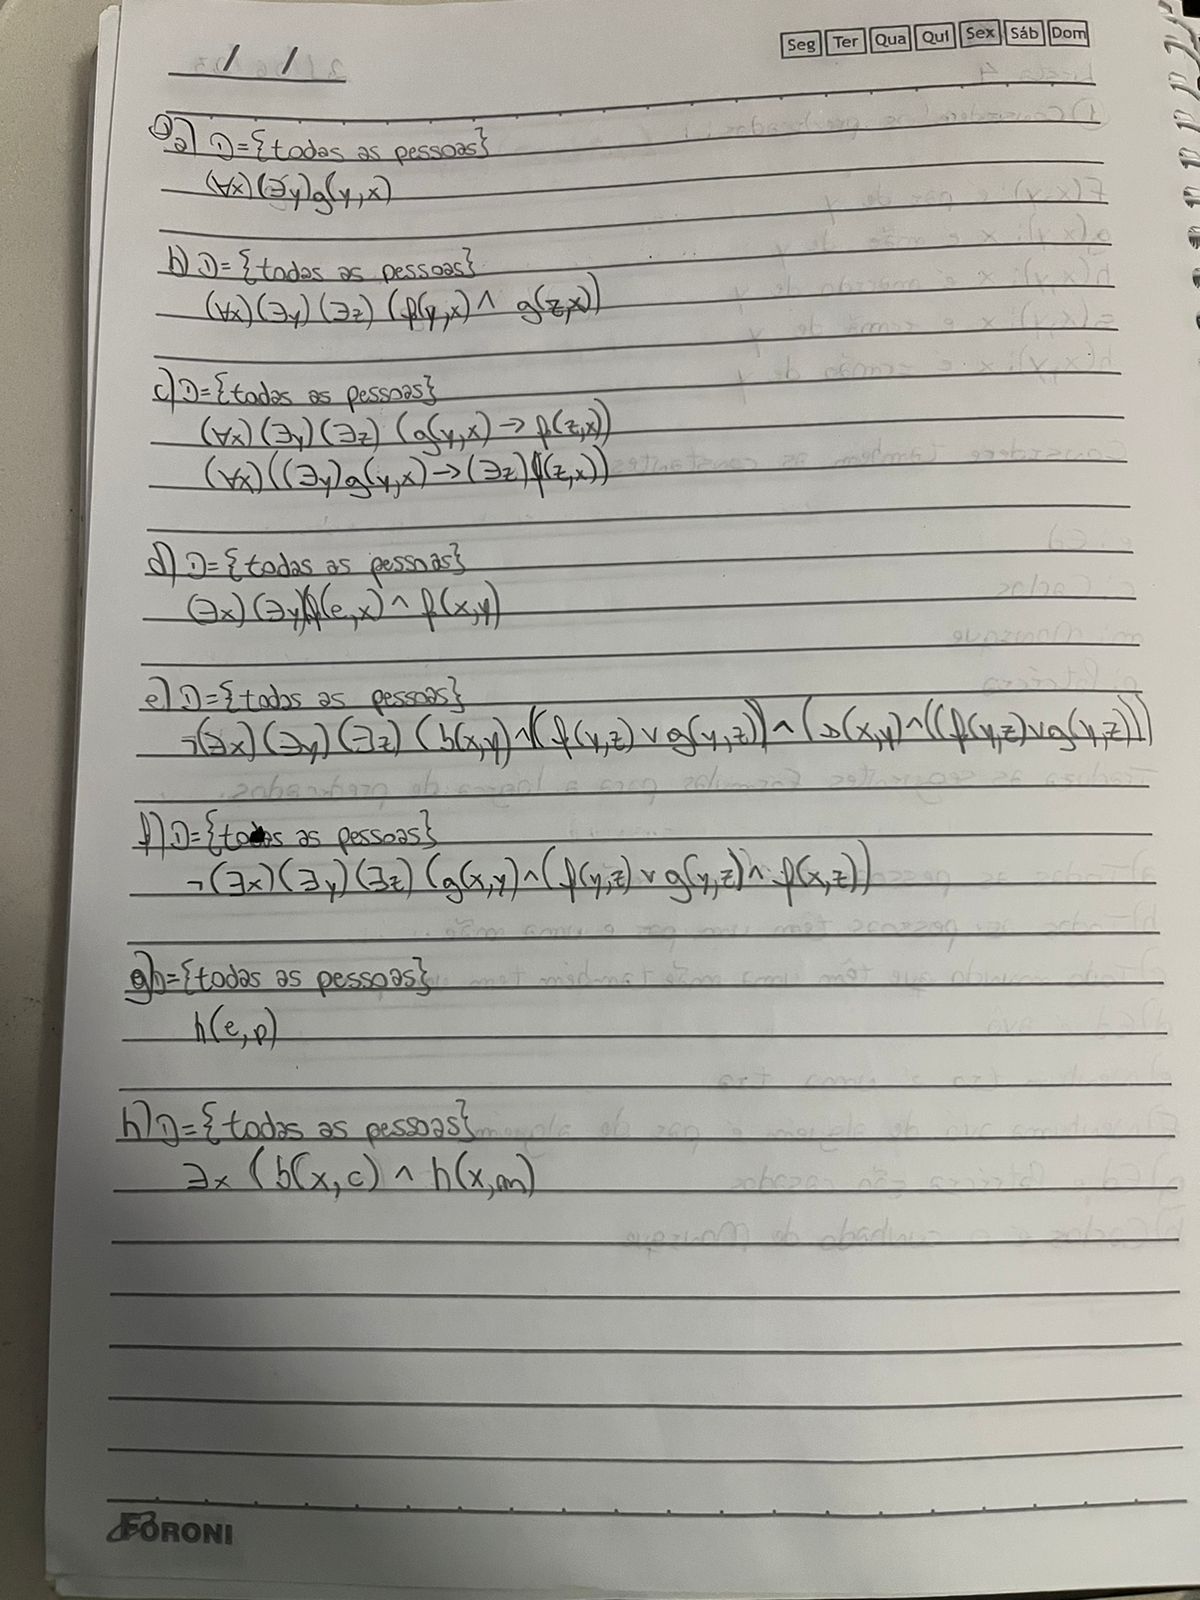 Seg Ter Qua Qui Sex Sáb Dom
/ /
1) a) D={todas as pessoas}
(∀x)(∃y)g(y,x)
b) D={todas as pessoas}
(∀x)(∃y)(∃z)(f(y,x) ∧ g(z,x))
c) D={todas as pessoas}
(∀x)(∃y)(∃z)(g(y,x) → f(z,x))
(∀x)((∃y)g(y,x) → (∃z)f(z,x))
d) D={todas as pessoas}
(∃x)(∃y)f(e,x) ∧ f(x,y)
e) D={todas as pessoas}
¬(∃x)(∃y)(∃z)(b(x,y)∧((f(y,z) ∨ g(y,z))∧(s(x,y)∧((f(y,z)∨g(y,z)))
f) D={todas as pessoas}
¬(∃x)(∃y)(∃z)(g(x,y)∧(f(y,z) ∨ g(y,z)∧ f(x,z))
g) D={todas as pessoas}
h(e,p)
h) D={todas as pessoas}
∃x (b(x,c) ∧ h(x,m)
FORONI